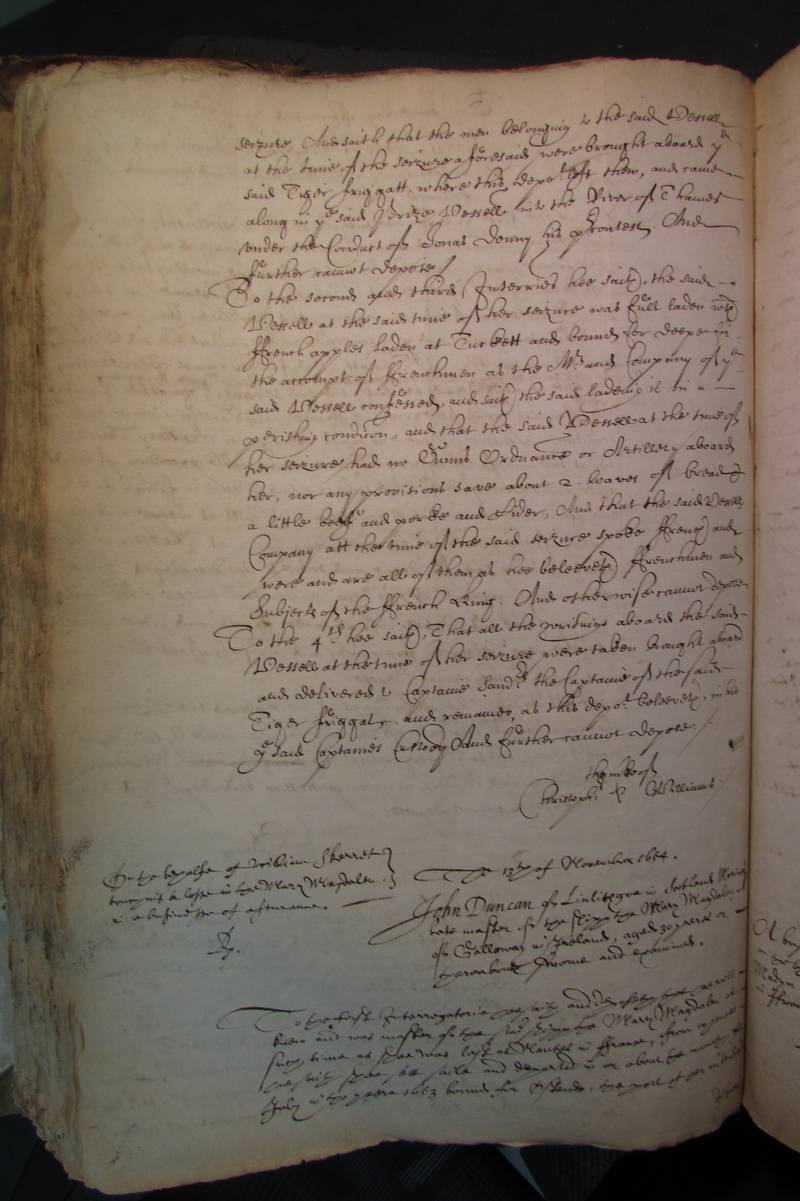 seizure. And saith that the men belonging to the said Vessell
at the time of the seizure aforesaid were brought aboard ye
said Tiger friggatt, where this depot left them, and came
along in ye said Prize Vessell into the River of Thames
under the Conduct of Jonas Denny his Contest. And
further cannot depose
To the second and third Interries hee saith, the said
Vessell at the said time of her seizure was full laden with
ffrench apples laden at Tuckett and bound for Deepe for
the accompt of ffrenchmen as the Mr and Company of ye
said Vessell confessed, and saith the said lading is in a
perishing condicon, and that the said Vessell at the time of
her seizure had no Gunns Ordnance or Artillery aboard
her, nor any provisions save about 2 loaves of bread &
a little beefe and porke and Sider, And that the said Vessells
Company att the time of the said seizure spoke ffrench and
were and are all of them as hee beleeveth ffrenchmen and
Subjects of the ffrench King. And otherwise cannot depose
To the 4th hee saith, That all the writings aboard the said
Vessell at the time of her seizure were taken brought aboard
and delivered to Captaine the Captaine of the said
Tiger friggat, and remaines, as this depot beleeveth, in
ye said Captaines Custody And further cannot depose.
the mke of
Christopher Williams
On the behalfe of William Skerret
touching a losse in the Mary Magdalen
in a busines of assurance.
The 13th of November 1654.
John Duncan of Linlitgoe in Scotland
late master of the shipp the Mary Magdalen
of Galloway in Ireland, aged 30 yeeres or
thereabouts sworne and examined.
To the first Interrogatorie hee saith and deposeth that hee well
knew and was master of the said shipp the Mary Magdalen at
such time as shee was last at Nantes in ffrance, from
hee saith shee set saile and departed in or about the moneth of
July in the yeere 1653 bound for Ostende, the port of